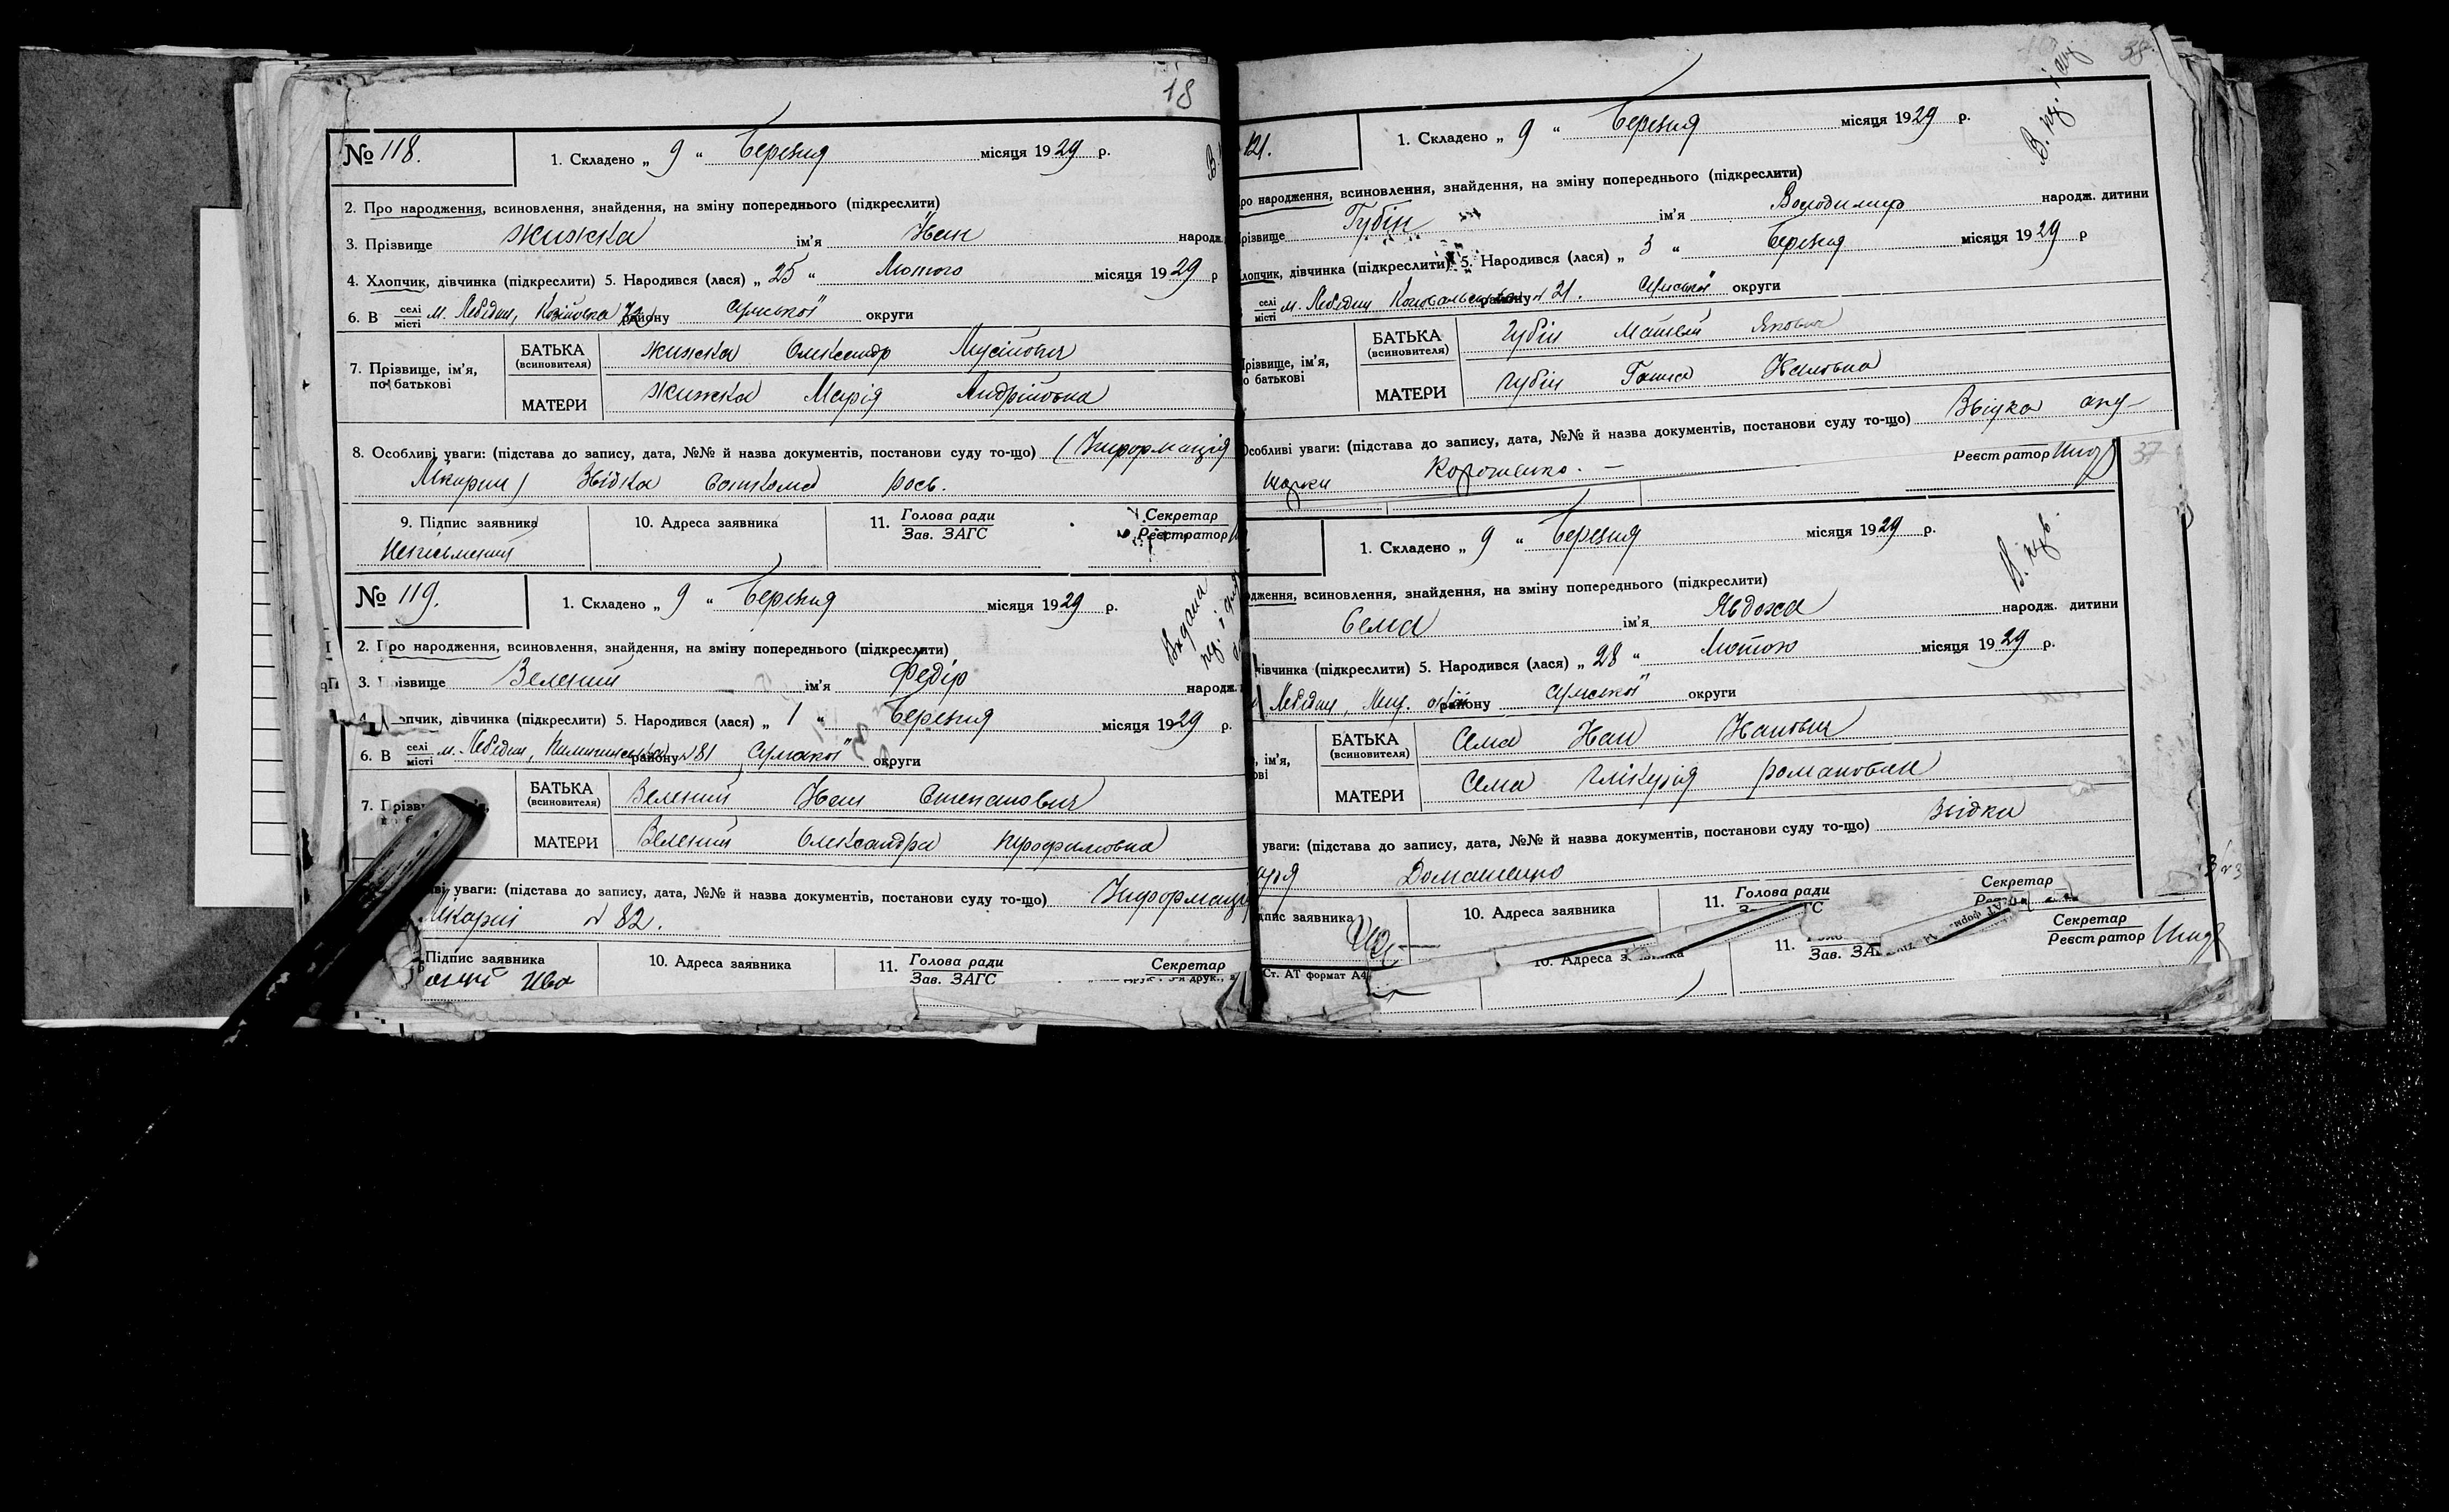 18
№ 118.
1. Складено „ 9 “ Березня місяця 1929 р.
2. Про народження, всиновлення, знайдення, на зміну попереднього (підкреслити)
3. Прізвище Жижка ім'я Іван народж.
4. Хлопчик, дівчинка (підкреслити) 5. Народився (лася) „ 25 “ Лютого місяця 1929 р
6. В селі місті м. Лебедин, району Сумської округи
7. Прізвище, ім'я, по батькові
БАТЬКА (всиновителя) Жижка Олександр Мусійович
МАТЕРИ Жижка Марія Андрійовна
8. Особливі уваги: (підстава до запису, дата, №№ й назва документів, постанови суду то-що) (Інформація
Лікарні) Звідка
9. Підпис заявника 10. Адреса заявника 11. Голова ради Зав. ЗАГС Секретар Реєстратор
Неписьменний
№ 119.
1. Складено „ 9 “ Березня місяця 1929 р.
Видана
2. Про народження, всиновлення, знайдення, на зміну попереднього (підкреслити)
3. Прізвище Зелений ім'я Федір народж.
опчик, дівчинка (підкреслити) 5. Народився (лася) „ 1 “ Березня місяця 1929 р.
6. В селі місті м. Лебедин, району № 81 Сумської округи
7. Прізв
БАТЬКА (всиновителя) Зелений Іван Степанович
МАТЕРИ Зелений Олександра Трофимовна
ві уваги: (підстава до запису, дата, №№ й назва документів, постанови суду то-що) Інформація
Лікарні № 82.
Підпис заявника 10. Адреса заявника 11. Голова ради Зав. ЗАГС Секретар
121.
1. Складено „ 9 “ Березня місяця 1929 р.
ро народження, всиновлення, знайдення, на зміну попереднього (підкреслити)
різвище Губін ім'я Володимир народж. дитини
лопчик, дівчинка (підкреслити) 5. Народився (лася) „ 3 “ Березня місяця 1929 р
селі місті м. Лебедин району № 21. Сумської округи
Прізвище, ім'я, о батькові
БАТЬКА (всиновителя) Губін Матвій Якович
МАТЕРИ Губін Ганна Івановна
Особливі уваги: (підстава до запису, дата, №№ й назва документів, постанови суду то-що) Звідка аку-
шорки
Реєстратор
37
1. Складено „ 9 “ Березня місяця 1929 р.
одження, всиновлення, знайдення, на зміну попереднього (підкреслити)
Сема ім'я Явдоха народж. дитини
дівчинка (підкреслити) 5. Народився (лася) „ 28 “ Лютого місяця 1929 р.
Лебедин, району Сумської округи
, ім'я,
ові
БАТЬКА (всиновителя) Сема Іван Іванович
МАТЕРИ Сема Глікерія Романовна
уваги: (підстава до запису, дата, №№ й назва документів, постанови суду то-що) Звідка
Домашенко
дпис заявника 10. Адреса заявника 11. Голова ради Секретар
Ст. АТ формат А4
10. Адреса 11. Зав. ЗА Секретар Реєстратор